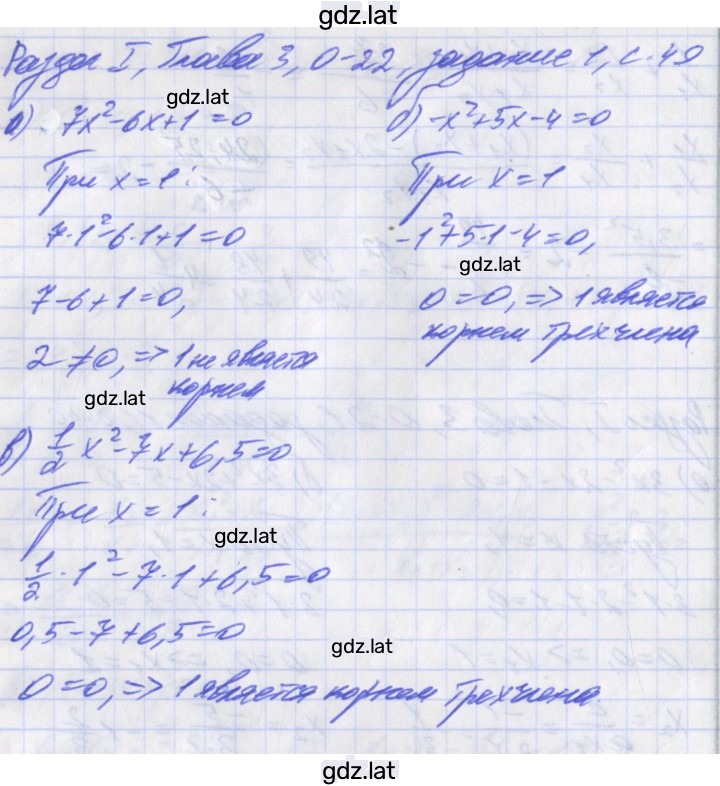 gdz.lat
Раздел I, Глава 3, О-22, задание 1, с. 49
gdz.lat
а) 7x²-6x+1=0
При x=1:
7·1²-6·1+1=0
7-6+1=0,
2≠0, => 1 не является
корнем
gdz.lat
б) -x²+5x-4=0
При x=1
-1²+5·1-4=0,
gdz.lat
0=0, => 1 является
корнем трехчлена
в) 1/2 x²-7x+6,5=0
При x=1:
gdz.lat
1/2·1²-7·1+6,5=0
0,5-7+6,5=0
gdz.lat
0=0, => 1 является корнем трехчлена.
gdz.lat